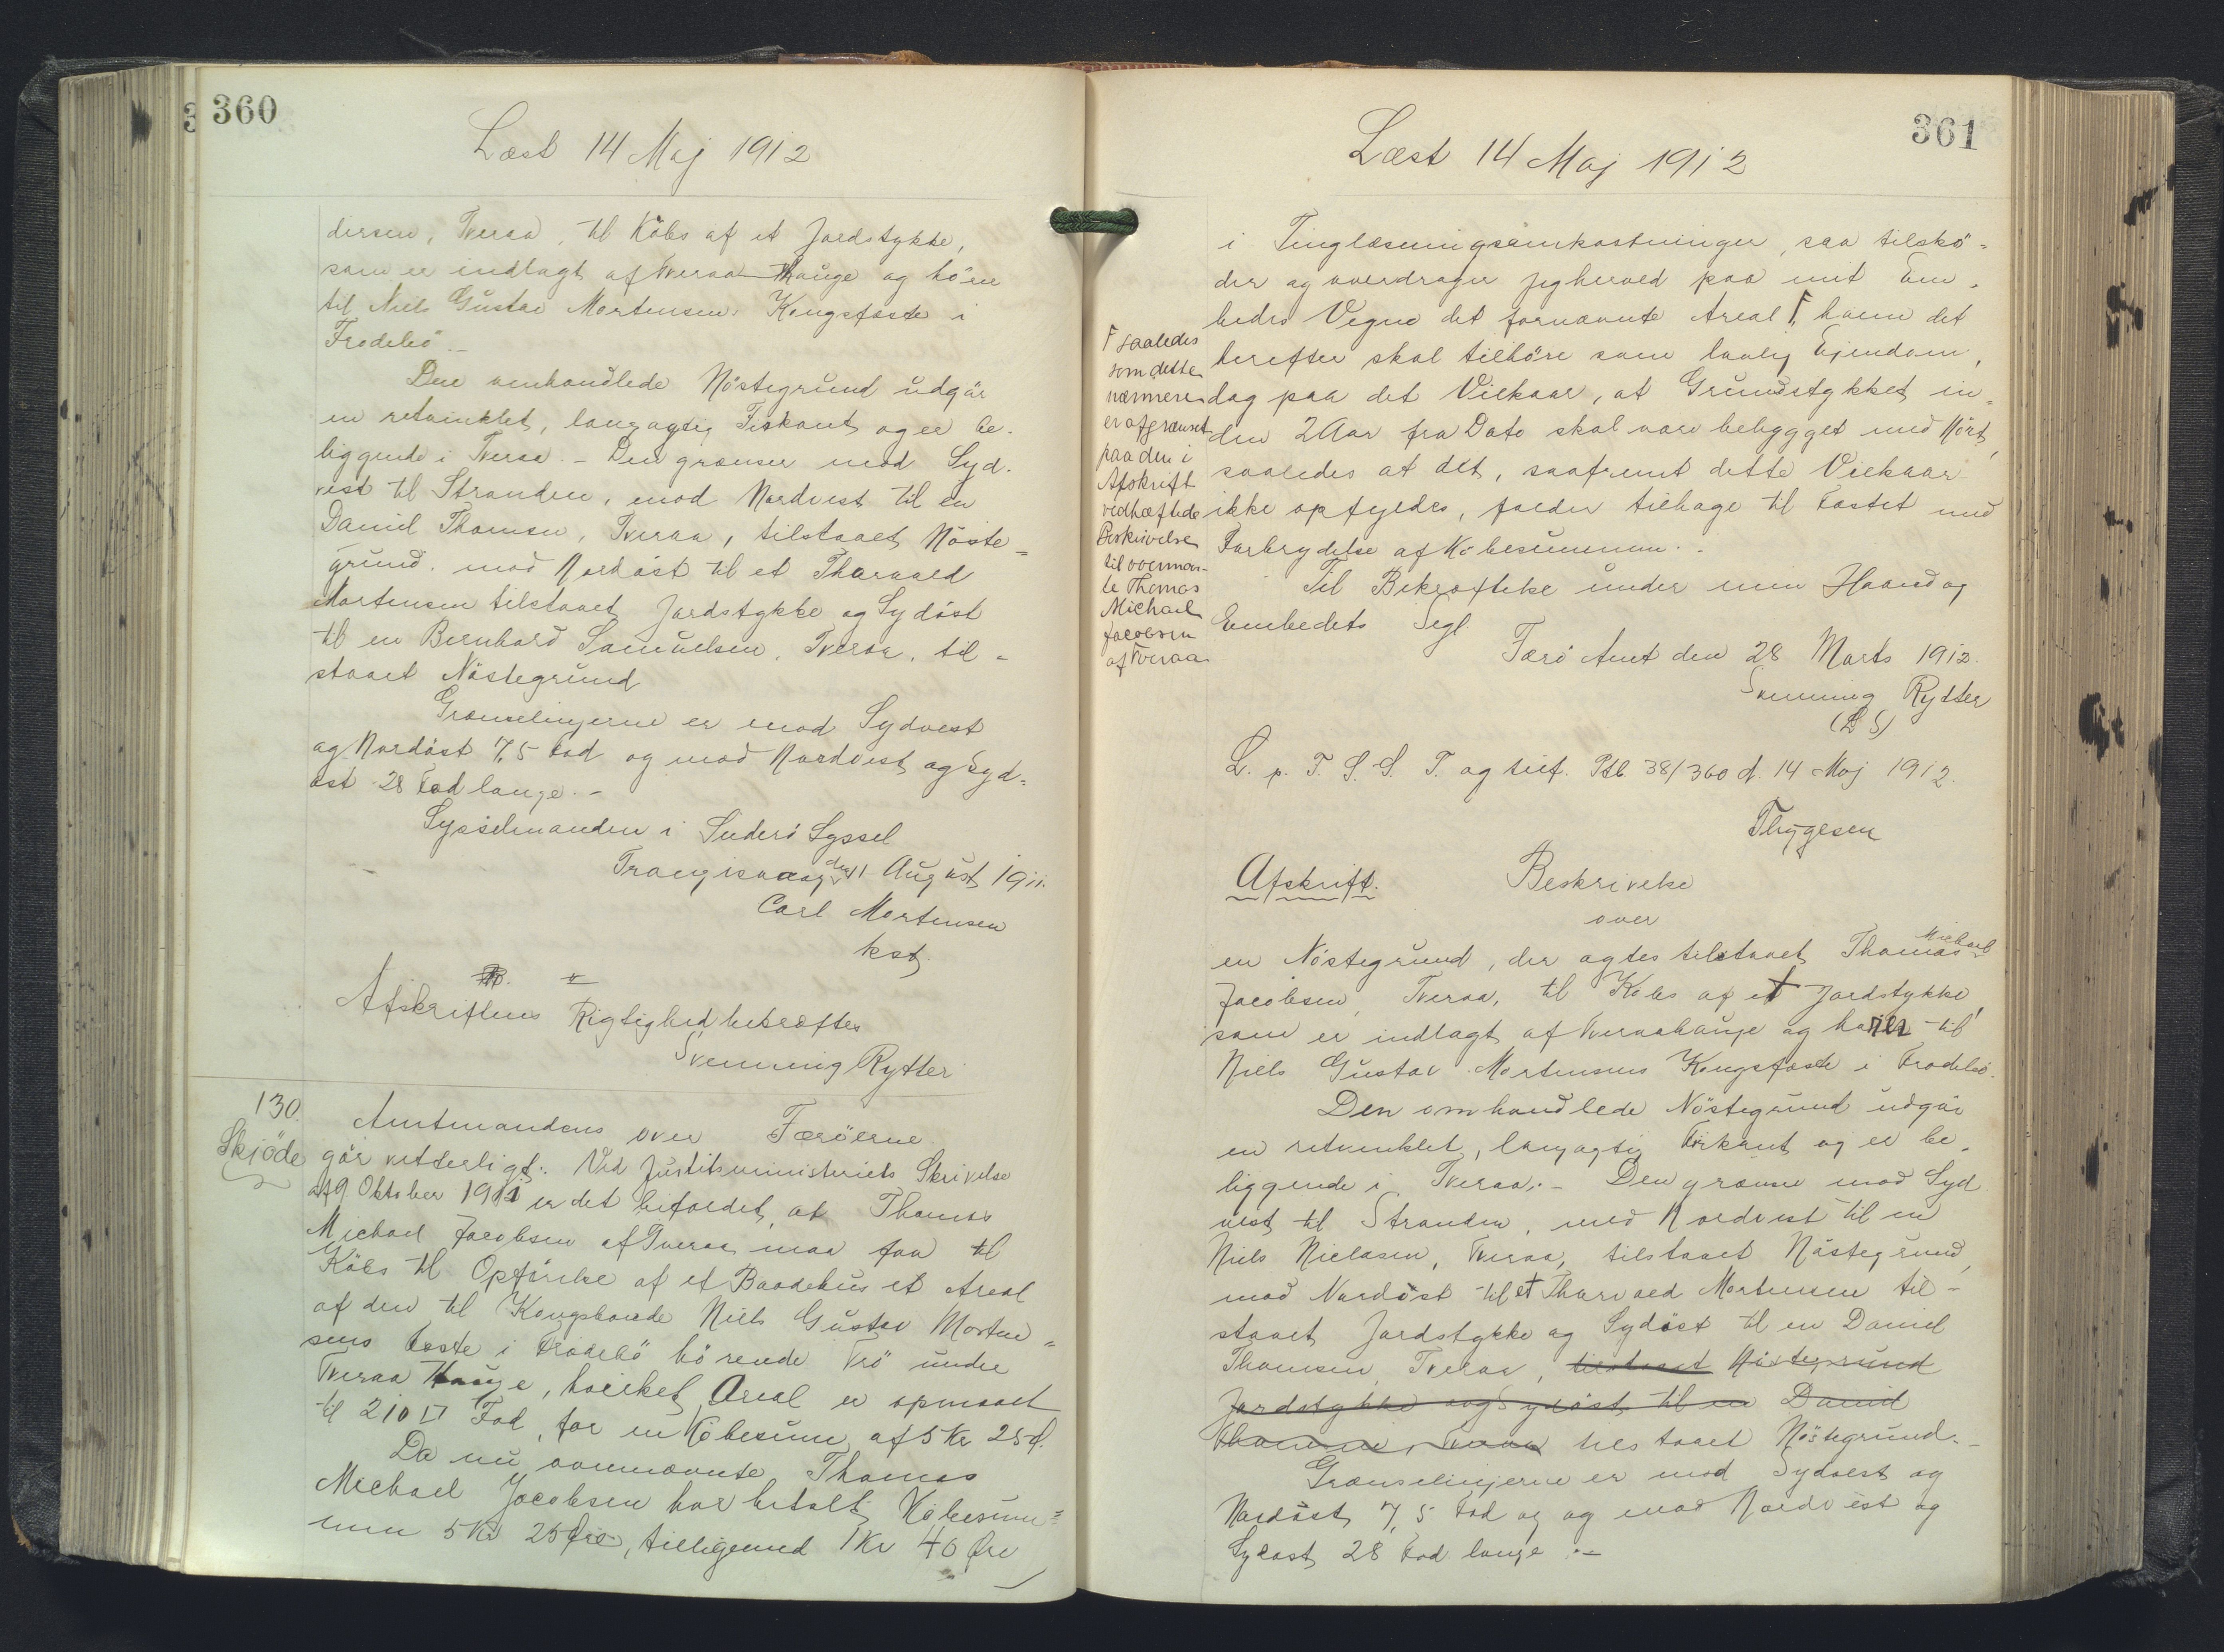 360
Læst 14 Maj 1912
dersen, Tveraa, til Købs af et Jordstykke,
som er indlagt af Tveraa Hauge og hører
til Niels Gustav Mortensens Kongsfæste i
Frodebö.-
Den omhandlede Nöstegrund udgör
en retvinklet, langagtig Firkant og er be-
liggende i Tveraa. - Den grænser mod Syd-
vest til Stranden, mod Nordvest til en
Daniel Thomsen, Tveraa, tilstaaet Nöste-
grund, mod Nordöst til et Thorvald
Mortensen tilstaaet Jordstykke og Sydöst
til en Bernhard Samuelsen, Tveraa, til-
staaet Nöstegrund
Grænselinjerne er mod Sydvest
og Nordöst 7,5 Fod og mod Nordvest og Syd-
öst 28 Fod lange. -
Sysselmanden i Suderö Syssel
Trangisvaag den 11 August 1911.
Carl Mortensen
kst.
Afskriftens Rigtighed bekræftes
Svenning Rytter
130.
Skjöde
Amtmandens over Færöerne
gör vitterligt: Ved Justitsministeriets Skrivelse
af 9 Oktober 1911 er det bifaldet, at Thomas
Michael Jacobsen af Tveraa maa faa til
Köbs til Opförelse af et Baadehus et Areal
af den til Kongsbonde Niels Gustav Morten-
sens Fæste i Frodebö hörende Trö under
Tveraa Hauge, hvilket Areal er opmaalt
til 210 □ Fod, for en Köbesum af 5 Kr 25 Ø.
Da nu ovennævnte Thomas
Michael Jacobsen har betalt Köbesum-
men 5 Kr 25 Øre, tilligemed 1 Kr 40 Øre
361
Læst 14 Maj 1912
i Tinglæsningsomkostninger, saa tilskö-
der og overdrager jeg herved paa mit Em-
bedes Vegne det fornævnte Areal Γ, hvem det
herefter skal tilhöre som lovlig Ejendom,
dog paa det Vilkaar, at Grundstykket in-
den 2 Aar fra Dato skal være bebygget med Nöst,
saaledes at det, saafremt dette Vilkaar
ikke opfyldes, falder tilbage til Fæstet med
Forbrydelse af Köbesummen. -
Γ saaledes
som dette
nærmere
er afgrænset
paa den i
Afskrift
vedhæftede
Beskrivelse
til ovennævn-
te Thomas
Michael
Jacobsen
af Tveraa
Til Bekræftelse under min Haand og
Embedets Segl.
Færö Amt den 28 Marts 1912.
Svenning Rytter
(L S)
L. p. T. S. S. T. og tilf. Ptb. 38/360 d. 14 Maj 1912.
Thygesen
Afskrift.
Beskrivelse
over
en Nöstegrund, der agtes tilstaaet Thomas Michael
Jacobsen, Tveraa, til Köbs af et Jordstykke,
som er indlagt af Tveraahauge og hörer til
Niels Gustav Mortensens Kongsfæste i Frodebö.
Den omhandlede Nöstegrund udgör
en retvinklet, langagtig Firkant og er be-
liggende i Tveraa. - Den grænser mod Syd
vest til Stranden, mod Nordvest til en
Niels Nielasen, Tveraa, tilstaaet Nöstegrund,
mod Nordöst til et Thorvald Mortensen til-
staaet Jordstykke og Sydöst til en Daniel
Thomsen, Tveraa, tilstaaet Nöstegrund
Jordstykke og Sydöst til en Daniel
Thomsen, Tveraa tilstaaet Nöstegrund. -
Grænselinjerne er mod Sydvest og
Nordöst 7,5 Fod og og mod Nordvest og
Sydöst 28 Fod lange. -